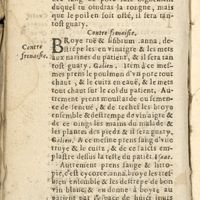 duquel tu oindras la rongne, mais
que le poil en soit osté, il sera tan-
tost guary.
Contre frenaisie.
Contre
frenaisie.
BRoye rue &
destrépe les en vinaigre & les mets
aux narines du patient, & il sera tan
tost guary. Galien, Item à ce mes-
mes prens le poulmon d'vn porc tout
chaut, & le cuits en eauë, & le mets
tout chaut sur le col du patient. Au-
trement prens moustarde ou semen-
ce de &
ensemble & destrempe de vinaigre &
de ce oings les mains du malade &
les plantes des pieds & il sera guary,
Galien, A ce mesme prens
troye & le cuits, & de ce faicts em-
plastre dessus la teste du patiét. &
Autrement prens sauge &
broye les
ensemble & les destrépe de bon
vin blanc, & en donne à boyre au
patient par l'espace de huict iours